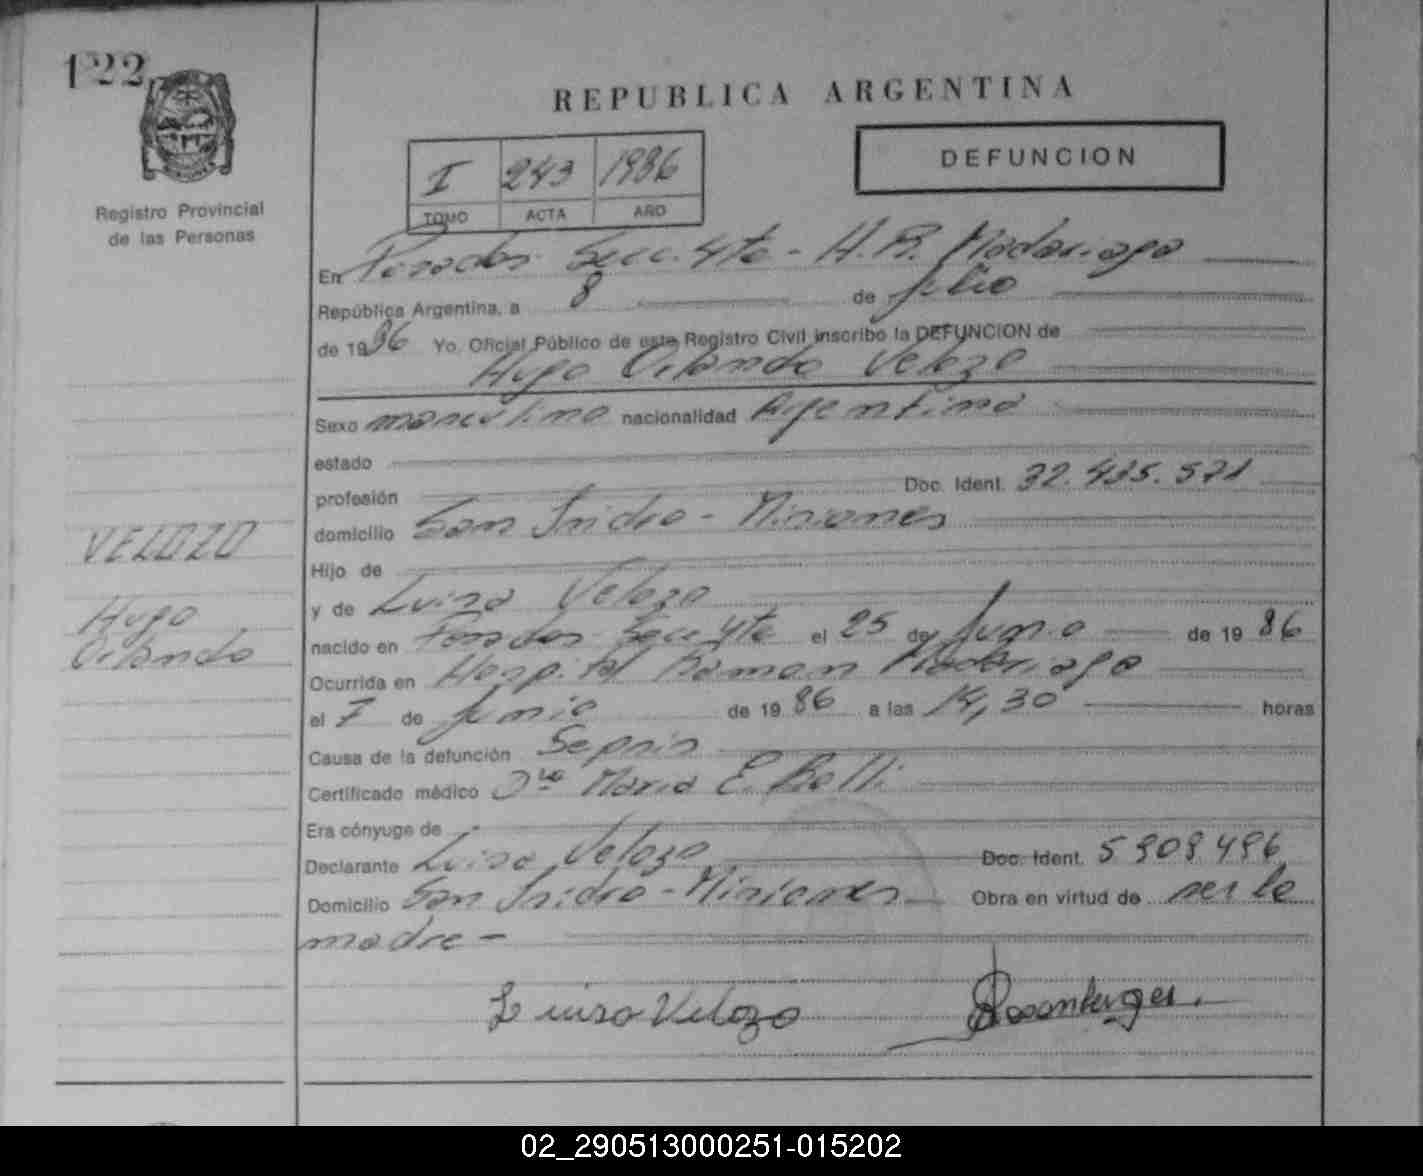 122
REPUBLICA ARGENTINA
I 243 1986
TOMO ACTA AÑO
DEFUNCION
Registro Provincial
de las Personas
En Posadas Secc. 4ta - H.R. Madariaga
República Argentina, a 8 de julio
de 1986 Yo, Oficial Público de este Registro Civil inscribo la DEFUNCION de
Hugo Orlando Velozo
Sexo masculino nacionalidad Argentina
estado
profesión Doc. Ident. 32.435.571
domicilio San Isidro - Misiones
VELOZO
Hugo
Orlando
Hijo de
y de Luisa Velozo
nacido en Posadas Secc 4ta el 25 de Junio de 1986
Ocurrida en Hospital Ramon Madariaga
el 7 de Junio de 1986 a las 14,30 horas
Causa de la defunción Sepsis
Certificado médico Dra Maria E. Belli
Era cónyuge de -
Declarante Luisa Velozo Doc. Ident. 5909496
Domicilio San Isidro - Misiones Obra en virtud de ser la
madre -
Luisa Velozo
02_290513000251-015202